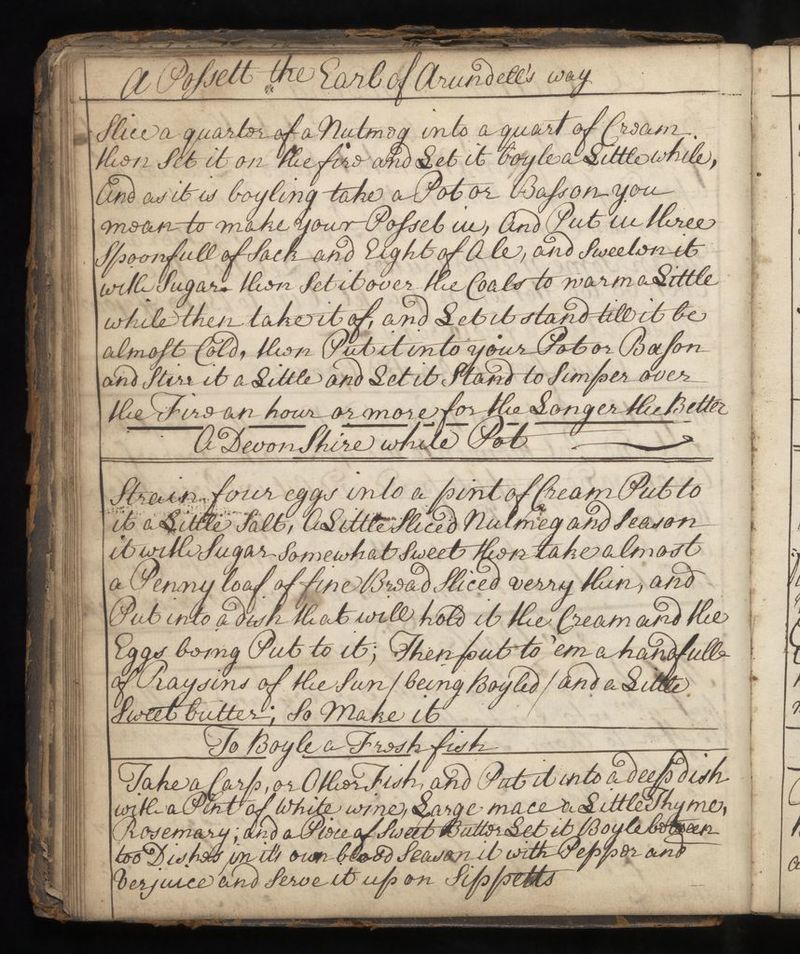 A Possett the Earl of Arundell's way
Slice a quarter of a Nutmeg into a quart of Cream.
then Set it on the fire and Let it boyle a Little while,
And as it is boyling take a Pot or Basson you
mean to make your Posset in, And Put in three
Spoonfull of Sack and Eight of Ale, and Sweeten it
with Sugar. then Set it over the Coals to warm a Little
while then take it of, and Let it stand till it be
almost Cold, then Put it into your Pot or Bason
and Stirr it a Little and Let it Stand to Simper over
the Fire an hour or more, for the Longer the Better
A Devon Shire while Pot
Strain four eggs into a pint of Cream Put to
it a Little Salt, A Little Sliced Nutmeg and Season
it with Sugar Somewhat Sweet then take almost
a Penny loaf of fine Bread Sliced verry thin, and
Put into a dish that will hold it the Cream and the
Eggs being Put to it; Then put to 'em a handfull
of Raysins of the Sun / being Boyled / and a Little
Sweet butter; So Make it
To Boyle a Fresh fish
Take a Carp, or Other Fish, and Put it into a deep dish
with a Pint of white wine, Large mace a Little Thyme,
Rosemary; and a Piece of Sweet Butter Let it Boyle between
too Dishes in it's own blood Season it with Pepper and
Verjuice and Serve it up on Sippetts